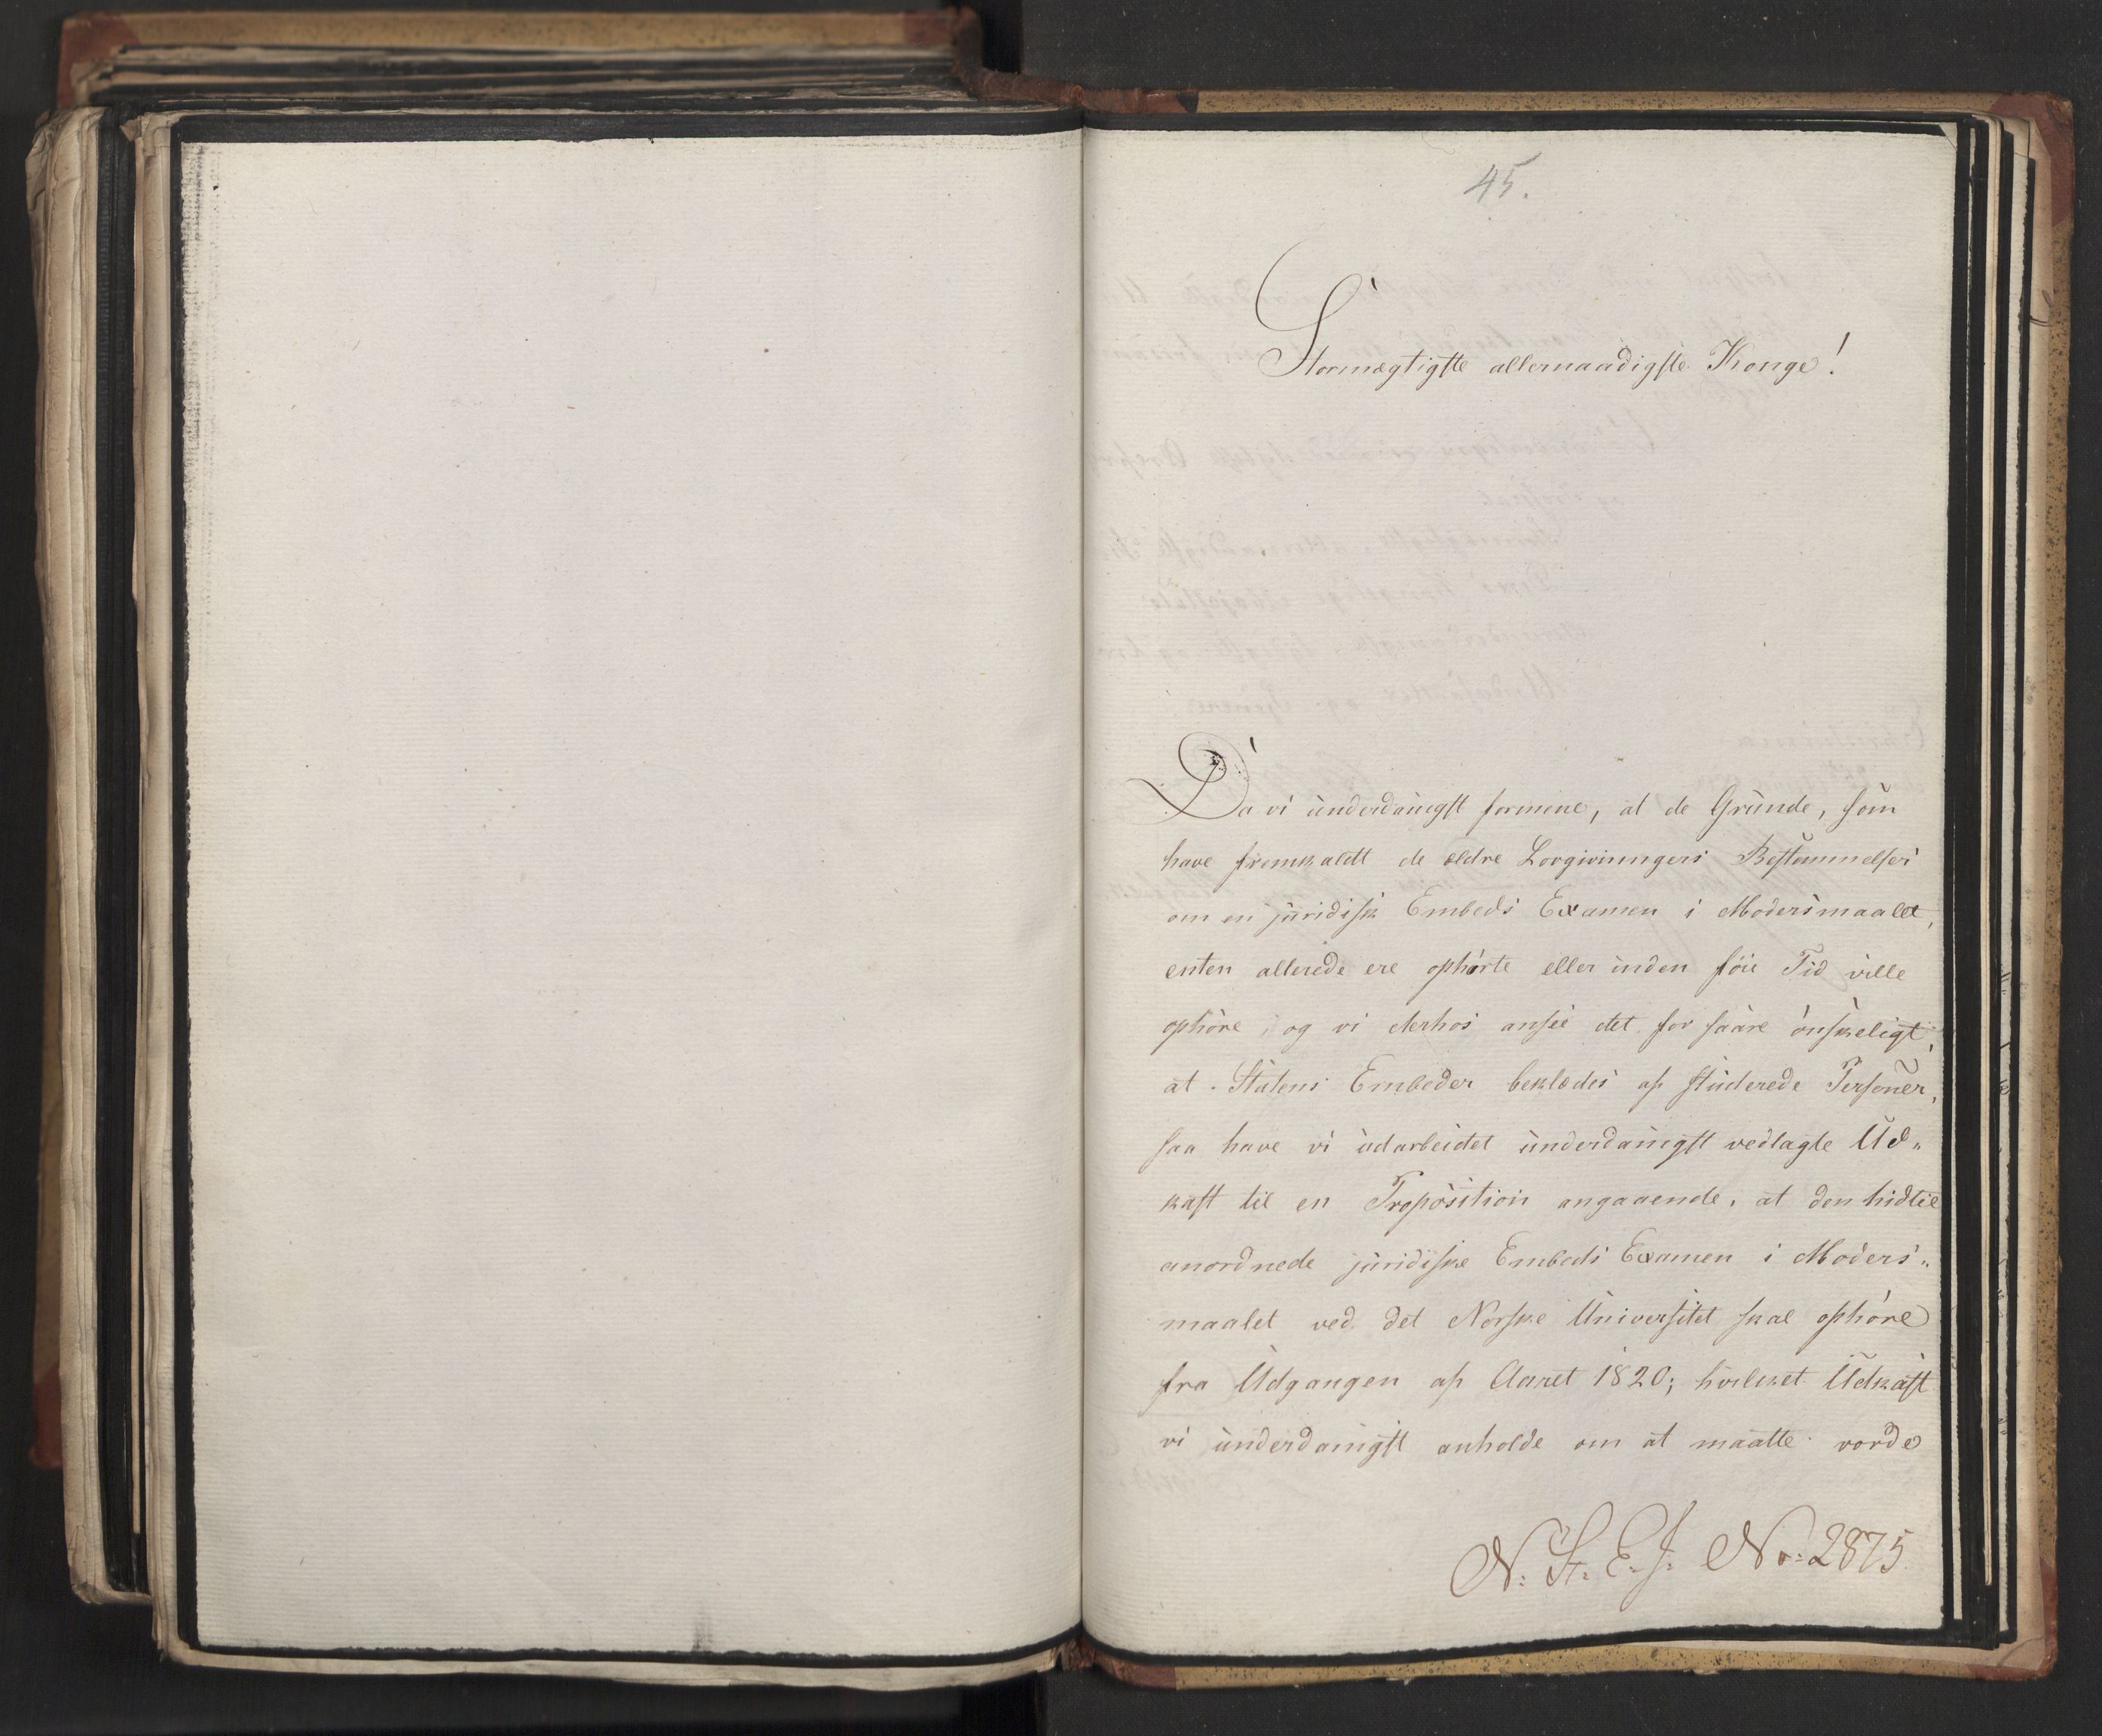 45.
Stormægtigste allernaadigste Konge!
Da vi underdanigst formene, at de Grunde, som
have fremkaldt de ældre Lovgivningers Bestemmelser
om en juridisk Embeds Examen i Modersmaalet,
enten allerede ere ophørte eller inden føie Tid ville
ophøre, og vi derhos ansee det for saare ønskeligt,
at Statens Embeder beklædes af studerede Personer,
saa have vi udarbeidet underdanigst vedlagte Ud„
kast til en Proposition angaaende, at den hidtil
anordnede juridiske Embeds Examen i Moders„
maalet ved det Norske Universitet skal ophøre
fra Udgangen af Aaret 1820; hvilket Udkast
vi underdanigst anholde om at maatte vorde
N: St: E: J: No: 2875